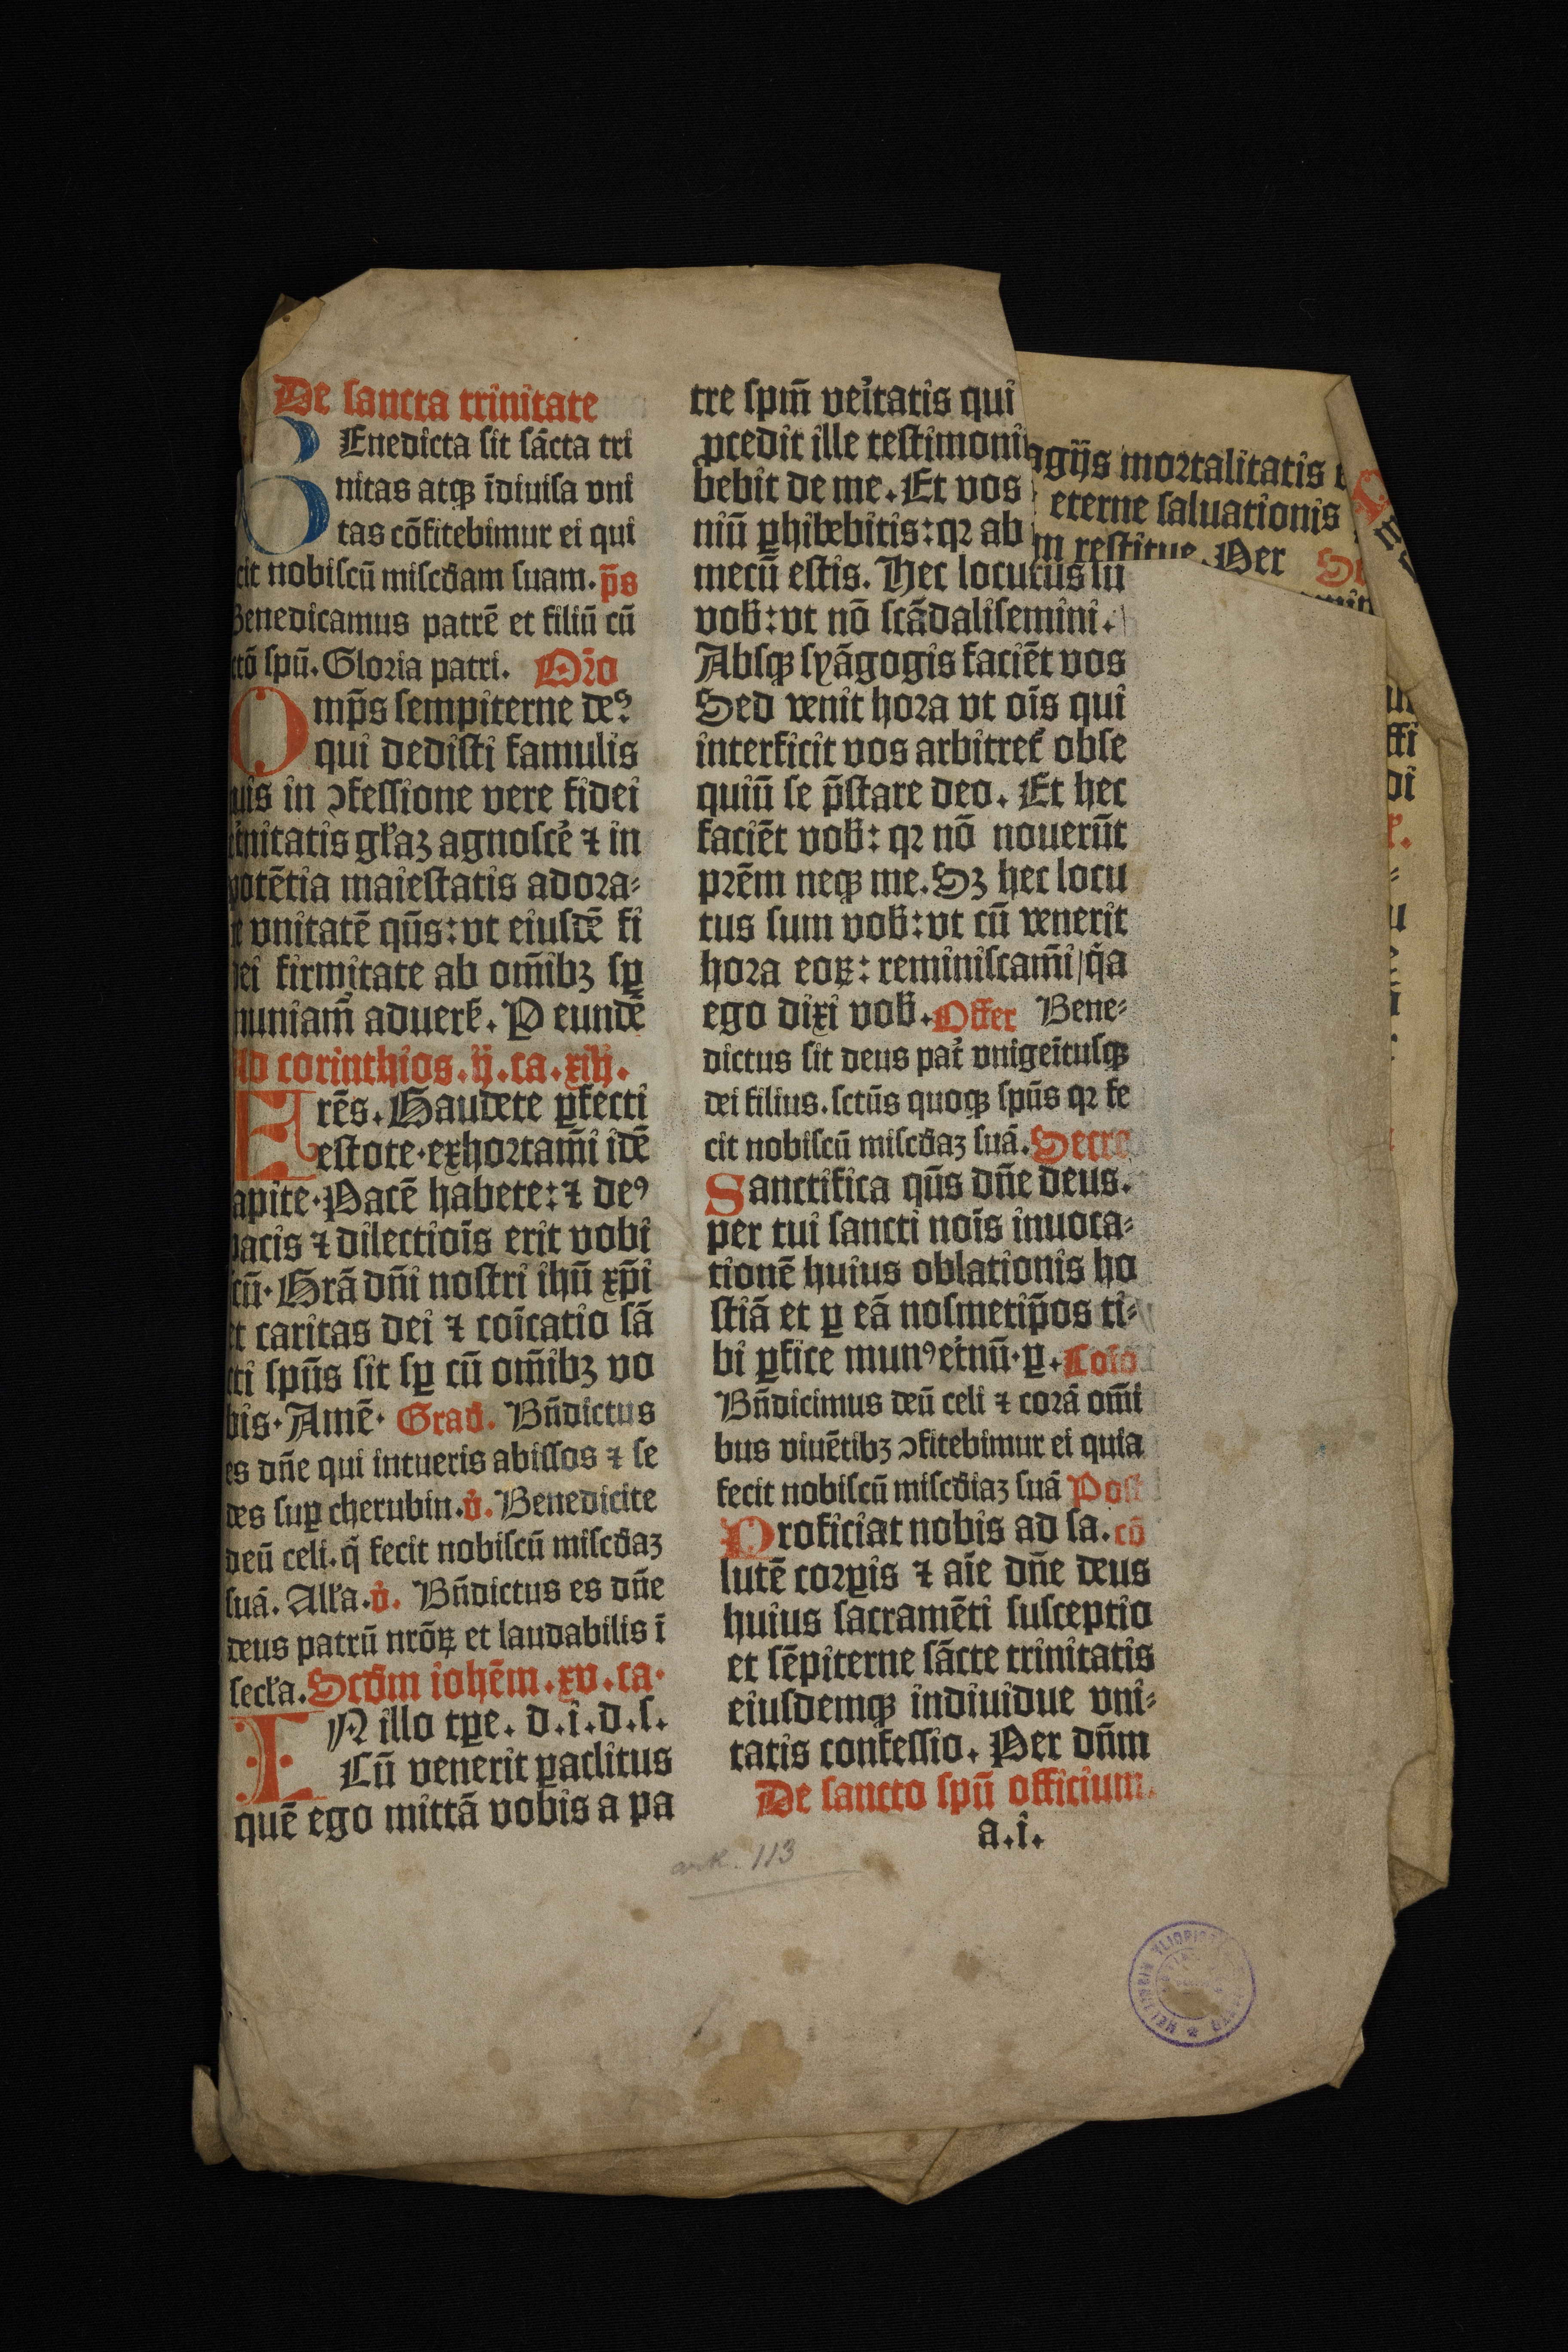 De sancta trinitate
BEnedicta sit sācta tri
nitas atqꝫ īdiuisa vni
tas cōfitebimur ei qui
cit nobiscū miscđam suam. p̄s
Benedicamus patrē et filiū cū
ctō spū. Gloria patri. Oῖo
Omp̄s sempiterne deꝰ
qui dedisti famulis
uis in ꝯfessione vere fidei
initatis gľaꝫ agnoscē ⁊ in
potētia maiestatis adora⸗
e vnitatē qūs: vt eiusdē fi
ei firmitate ab om̄ibꝫ sꝑ
muniam̄ aduerẜ. P eundē
Ad corinthios. ij. ca. xiij.
FRēs. Gaudete ꝑfecti
estote · exhortam̄i idē
apite · Pacē habete: ⁊ deꝰ
pacis ⁊ dilectiōis erit vobi
cū · Grā dn̄i nostri ihū xp̄i
et caritas dei ⁊ coīcatio sā
cti spūs sit sꝑ cū om̄ibꝫ vo
bis · Amē · Građ. Bn̄dictus
es dn̄e qui intueris abissos ⁊ se
des suꝑ cherubin. v̓. Benedicite
deū celi. q̄ fecit nobiscū miscđaꝫ
suā. Alľa. v̓. Bn̄dictus es dn̄e
deus patrū nrōꝝ et laudabilis ī
secľa. Scđm iohēm. xv. ca·
IN illo tꝑe. d. i. d. s.
Cū venerit ꝑaclitus
quē ego mittā vobis a pa
tre spm̄ veītatis qui
ꝓcedit ille testimoni
bebit de me. Et vos
niū ꝑhibebitis: qꝛ ab
mecū estis. Hec locutus su
voƀ: vt nō scādalisemini.
Absqꝫ syāgogis faciēt vos
Sed venit hora vt oīs qui
interficit vos arbitreť obse
quiū se p̄stare deo. Et hec
faciēt voƀ: qꝛ nō nouerūt
prēm neqꝫ me. Sꝫ hec locu
tus sum voƀ: vt cū venerit
hora eoꝝ: reminiscam̄i / q̄a
ego dixi voƀ. Offer Bene⸗
dictus sit deus pať vnigeītusqꝫ
dei filius. sctūs quoqꝫ spūs qꝛ fe
cit nobiscū miscđaꝫ suā. Secre
Sanctifica qūs dn̄e deus.
per tui sancti noīs inuoca⸗
tionē huius oblationis ho
stiā et ꝑ eā nosmetip̄os ti⸗
bi ꝑfice munꝰ eťnū · ꝑ. Coīo
Bn̄dicimus deū celi ⁊ corā om̄i
bus viuētibꝫ ꝯfitebimur ei quia
fecit nobiscū miscđiaꝫ suā Post
Proficiat nobis ad sa. cō
lutē corꝑis ⁊ aīe dn̄e deus
huius sacramēti susceptio
et sēpiterne sācte trinitatis
eiusdemqꝫ indiuidue vni⸗
tatis confessio. Per dn̄m
De sancto spū officium.
a. i.
agijs mortalitatis
eterne saluationis
m restitue. Per
ark. 113